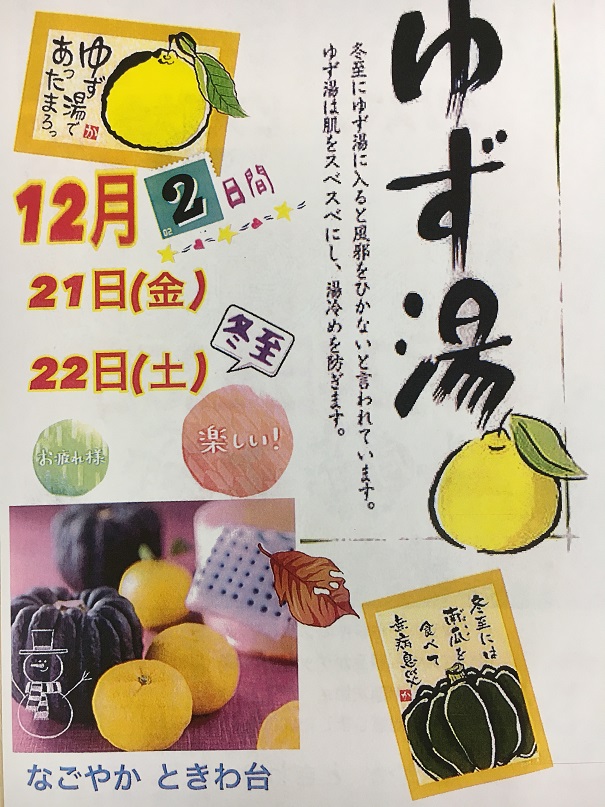 ゆず湯
冬至にゆず湯に入ると風邪をひかないと言われています。
ゆず湯は肌をスベスベにし、湯冷めを防ぎます。
ゆず湯で
あったまろっ
か
12月
2
日間
02
21日(金)
22日(土)
冬至
お疲れ様
楽しい!
冬至には
南瓜を
食べて
無病息災
か
なごやか ときわ台